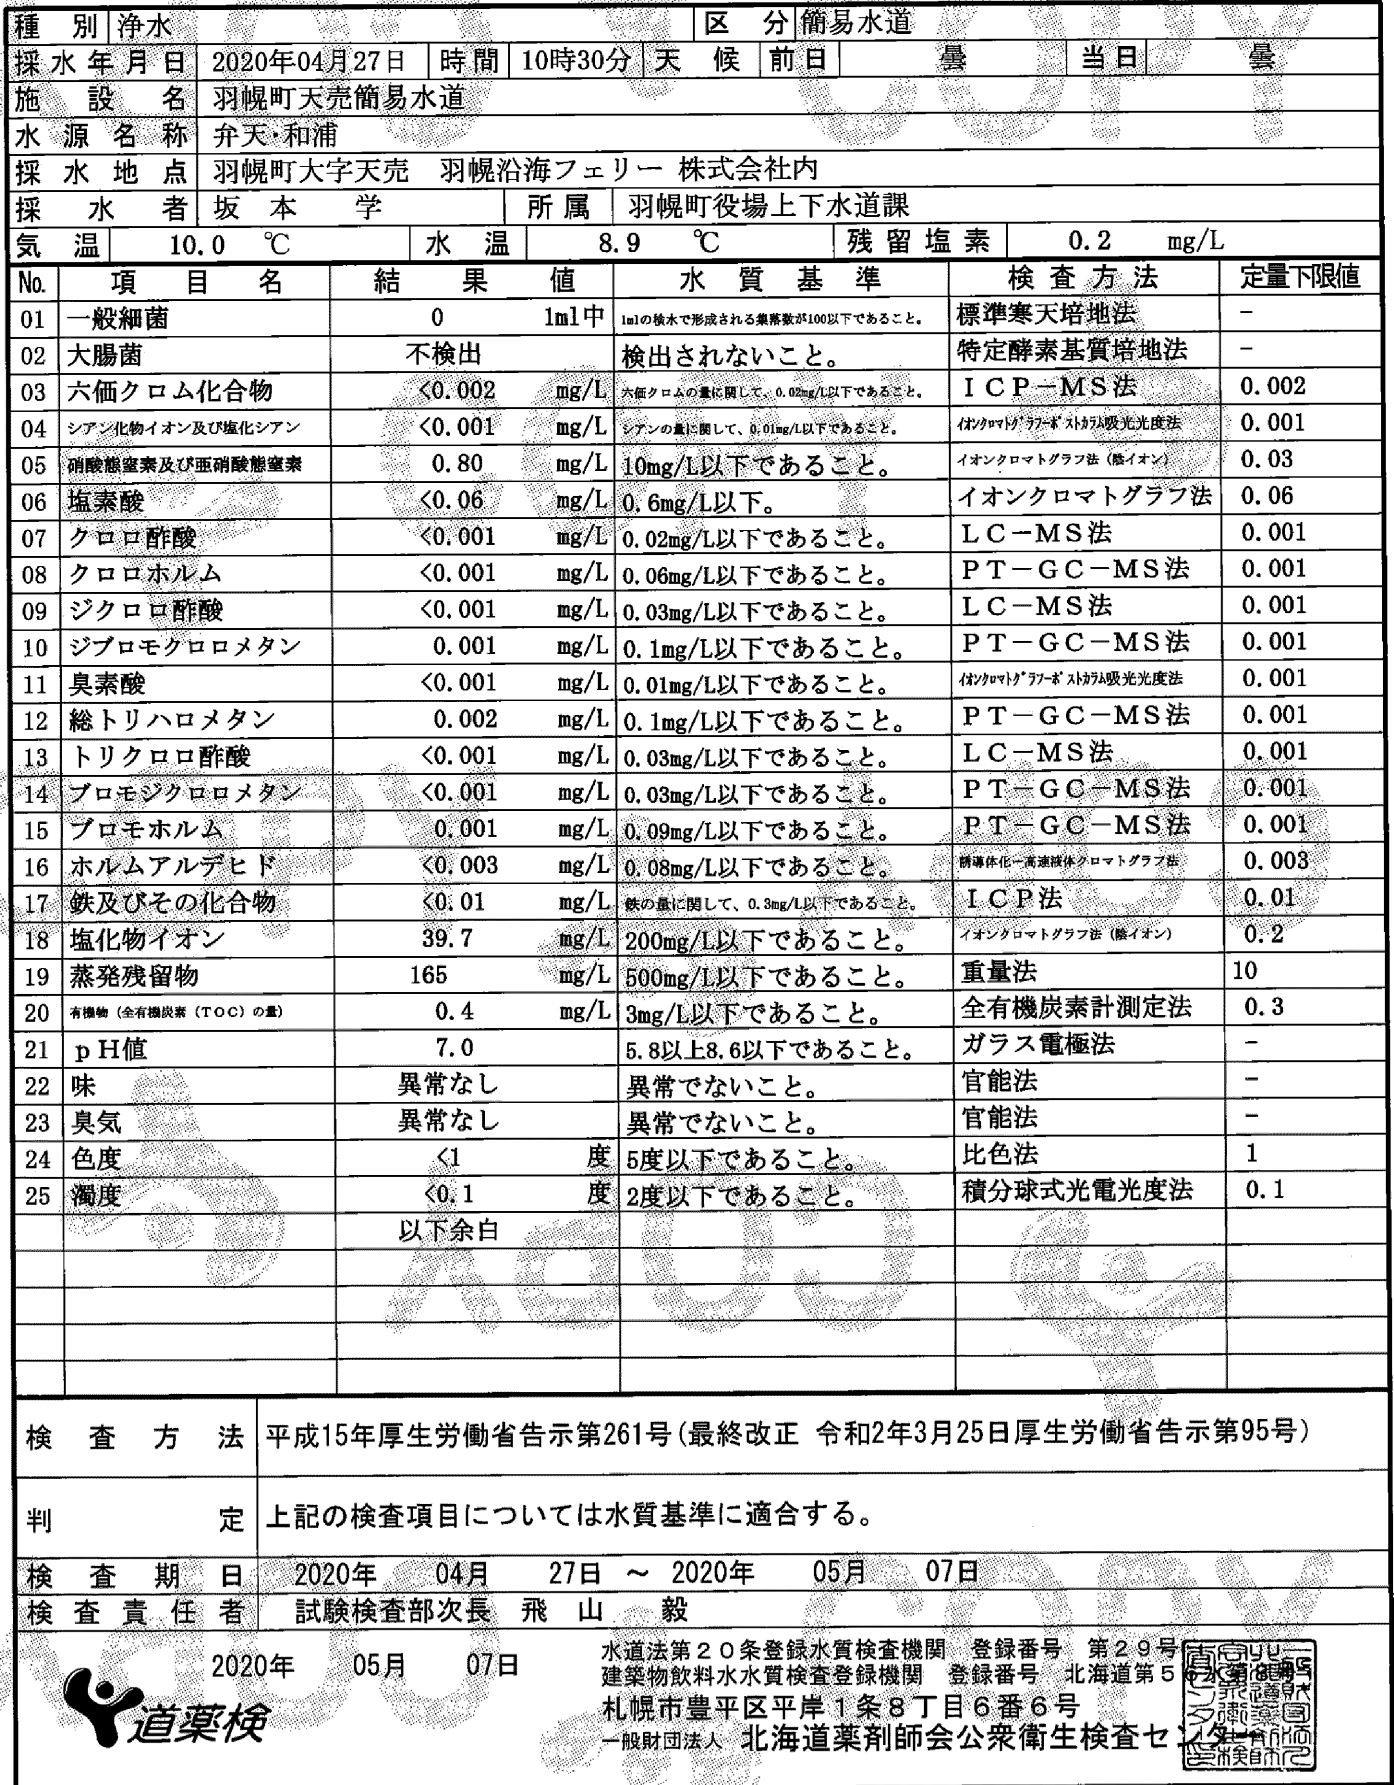 種別 浄水 区分 簡易水道
採水年月日 2020年04月27日 時間 10時30分 天候 前日 曇 当日 曇
施設名 羽幌町天売簡易水道
水源名称 弁天・和浦
採水地点 羽幌町大字天売 羽幌沿海フェリー 株式会社内
採水者 坂本 学 所属 羽幌町役場上下水道課
気温 10.0 ℃ 水温 8.9 ℃ 残留塩素 0.2 mg/L
No. 項目名 結果値 水質基準 検査方法 定量下限値
01 一般細菌 0 1ml中 1mlの検水で形成される集落数が100以下であること。 標準寒天培地法 -
02 大腸菌 不検出 検出されないこと。 特定酵素基質培地法 -
03 六価クロム化合物 <0.002 mg/L 六価クロムの量に関して、0.02mg/L以下であること。 ICP-MS法 0.002
04 シアン化物イオン及び塩化シアン <0.001 mg/L シアンの量に関して、0.01mg/L以下であること。 イオンクロマトグラフーポストカラム吸光光度法 0.001
05 硝酸態窒素及び亜硝酸態窒素 0.80 mg/L 10mg/L以下であること。 イオンクロマトグラフ法（陰イオン） 0.03
06 塩素酸 <0.06 mg/L 0.6mg/L以下。 イオンクロマトグラフ法 0.06
07 クロロ酢酸 <0.001 mg/L 0.02mg/L以下であること。 LC-MS法 0.001
08 クロロホルム <0.001 mg/L 0.06mg/L以下であること。 PT-GC-MS法 0.001
09 ジクロロ酢酸 <0.001 mg/L 0.03mg/L以下であること。 LC-MS法 0.001
10 ジブロモクロロメタン 0.001 mg/L 0.1mg/L以下であること。 PT-GC-MS法 0.001
11 臭素酸 <0.001 mg/L 0.01mg/L以下であること。 イオンクロマトグラフーポストカラム吸光光度法 0.001
12 総トリハロメタン 0.002 mg/L 0.1mg/L以下であること。 PT-GC-MS法 0.001
13 トリクロロ酢酸 <0.001 mg/L 0.03mg/L以下であること。 LC-MS法 0.001
14 ブロモジクロロメタン <0.001 mg/L 0.03mg/L以下であること。 PT-GC-MS法 0.001
15 ブロモホルム 0.001 mg/L 0.09mg/L以下であること。 PT-GC-MS法 0.001
16 ホルムアルデヒド <0.003 mg/L 0.08mg/L以下であること。 誘導体化-高速液体クロマトグラフ法 0.003
17 鉄及びその化合物 <0.01 mg/L 鉄の量に関して、0.3mg/L以下であること。 ICP法 0.01
18 塩化物イオン 39.7 mg/L 200mg/L以下であること。 イオンクロマトグラフ法（陰イオン） 0.2
19 蒸発残留物 165 mg/L 500mg/L以下であること。 重量法 10
20 有機物（全有機炭素（TOC）の量） 0.4 mg/L 3mg/L以下であること。 全有機炭素計測定法 0.3
21 pH値 7.0 5.8以上8.6以下であること。 ガラス電極法 -
22 味 異常なし 異常でないこと。 官能法 -
23 臭気 異常なし 異常でないこと。 官能法 -
24 色度 <1 度 5度以下であること。 比色法 1
25 濁度 <0.1 度 2度以下であること。 積分球式光電光度法 0.1
以下余白
検査方法 平成15年厚生労働省告示第261号(最終改正 令和2年3月25日厚生労働省告示第95号)
判定 上記の検査項目については水質基準に適合する。
検査期日 2020年 04月 27日 ～ 2020年 05月 07日
検査責任者 試験検査部次長 飛山 毅
2020年 05月 07日
水道法第20条登録水質検査機関 登録番号 第29号
建築物飲料水水質検査登録機関 登録番号 北海道第56水第8号
札幌市豊平区平岸1条8丁目6番6号
一般財団法人 北海道薬剤師会公衆衛生検査センター
道薬検